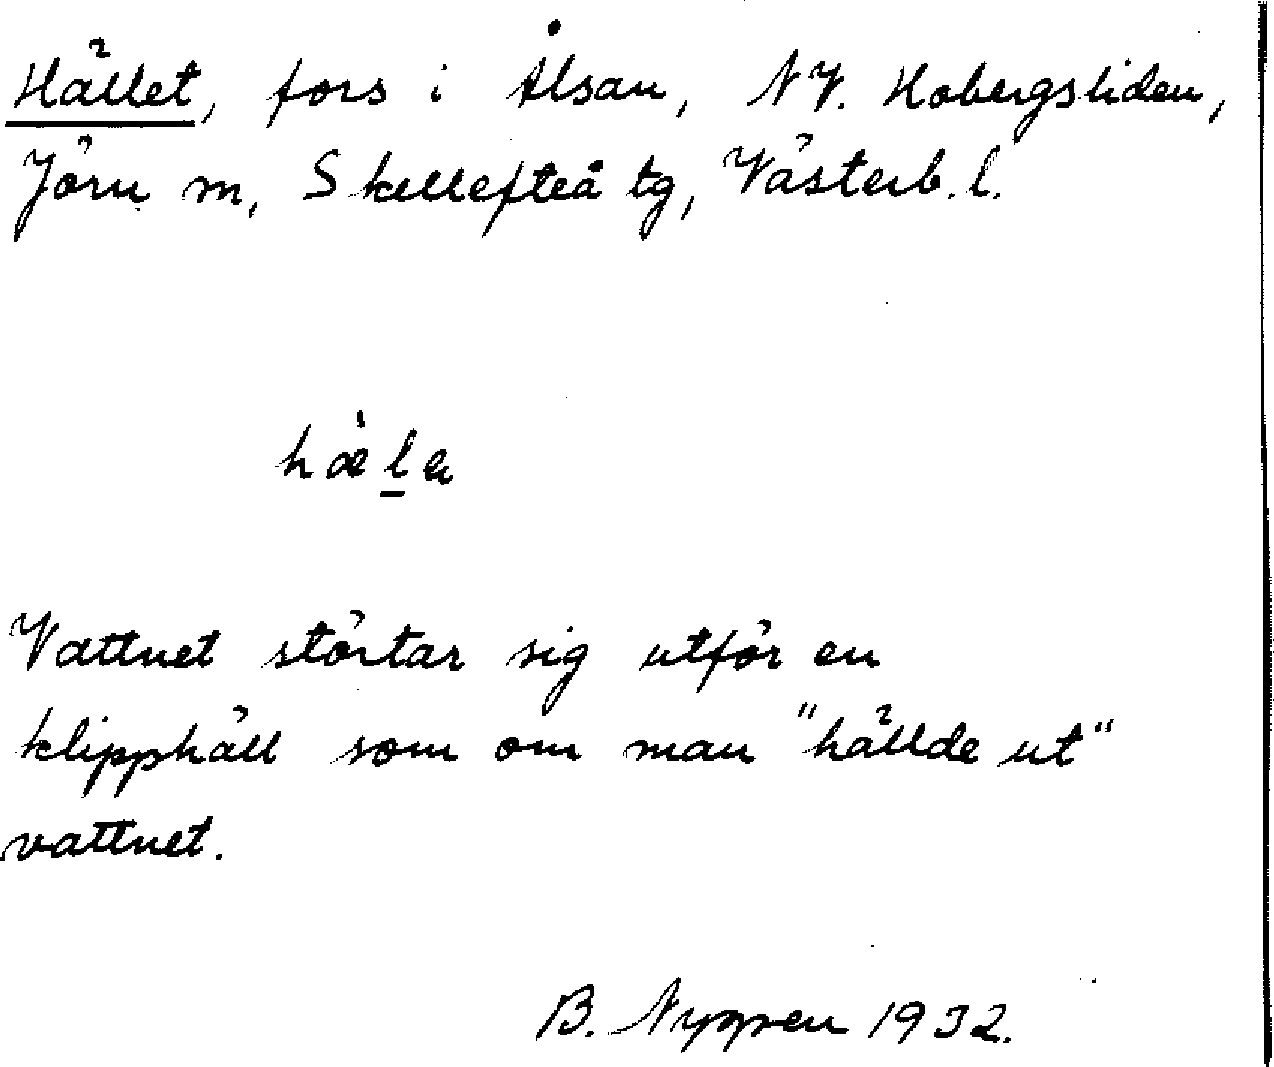 Hället, fors i Ålsan, NV. Hobergsliden,
Jörn m, Skellefteå tg, Västerb. l.
hæ̀le
Vattnet störtar sig utför en
klipphäll som om man "hällde ut"
vattnet.
B. 1932.